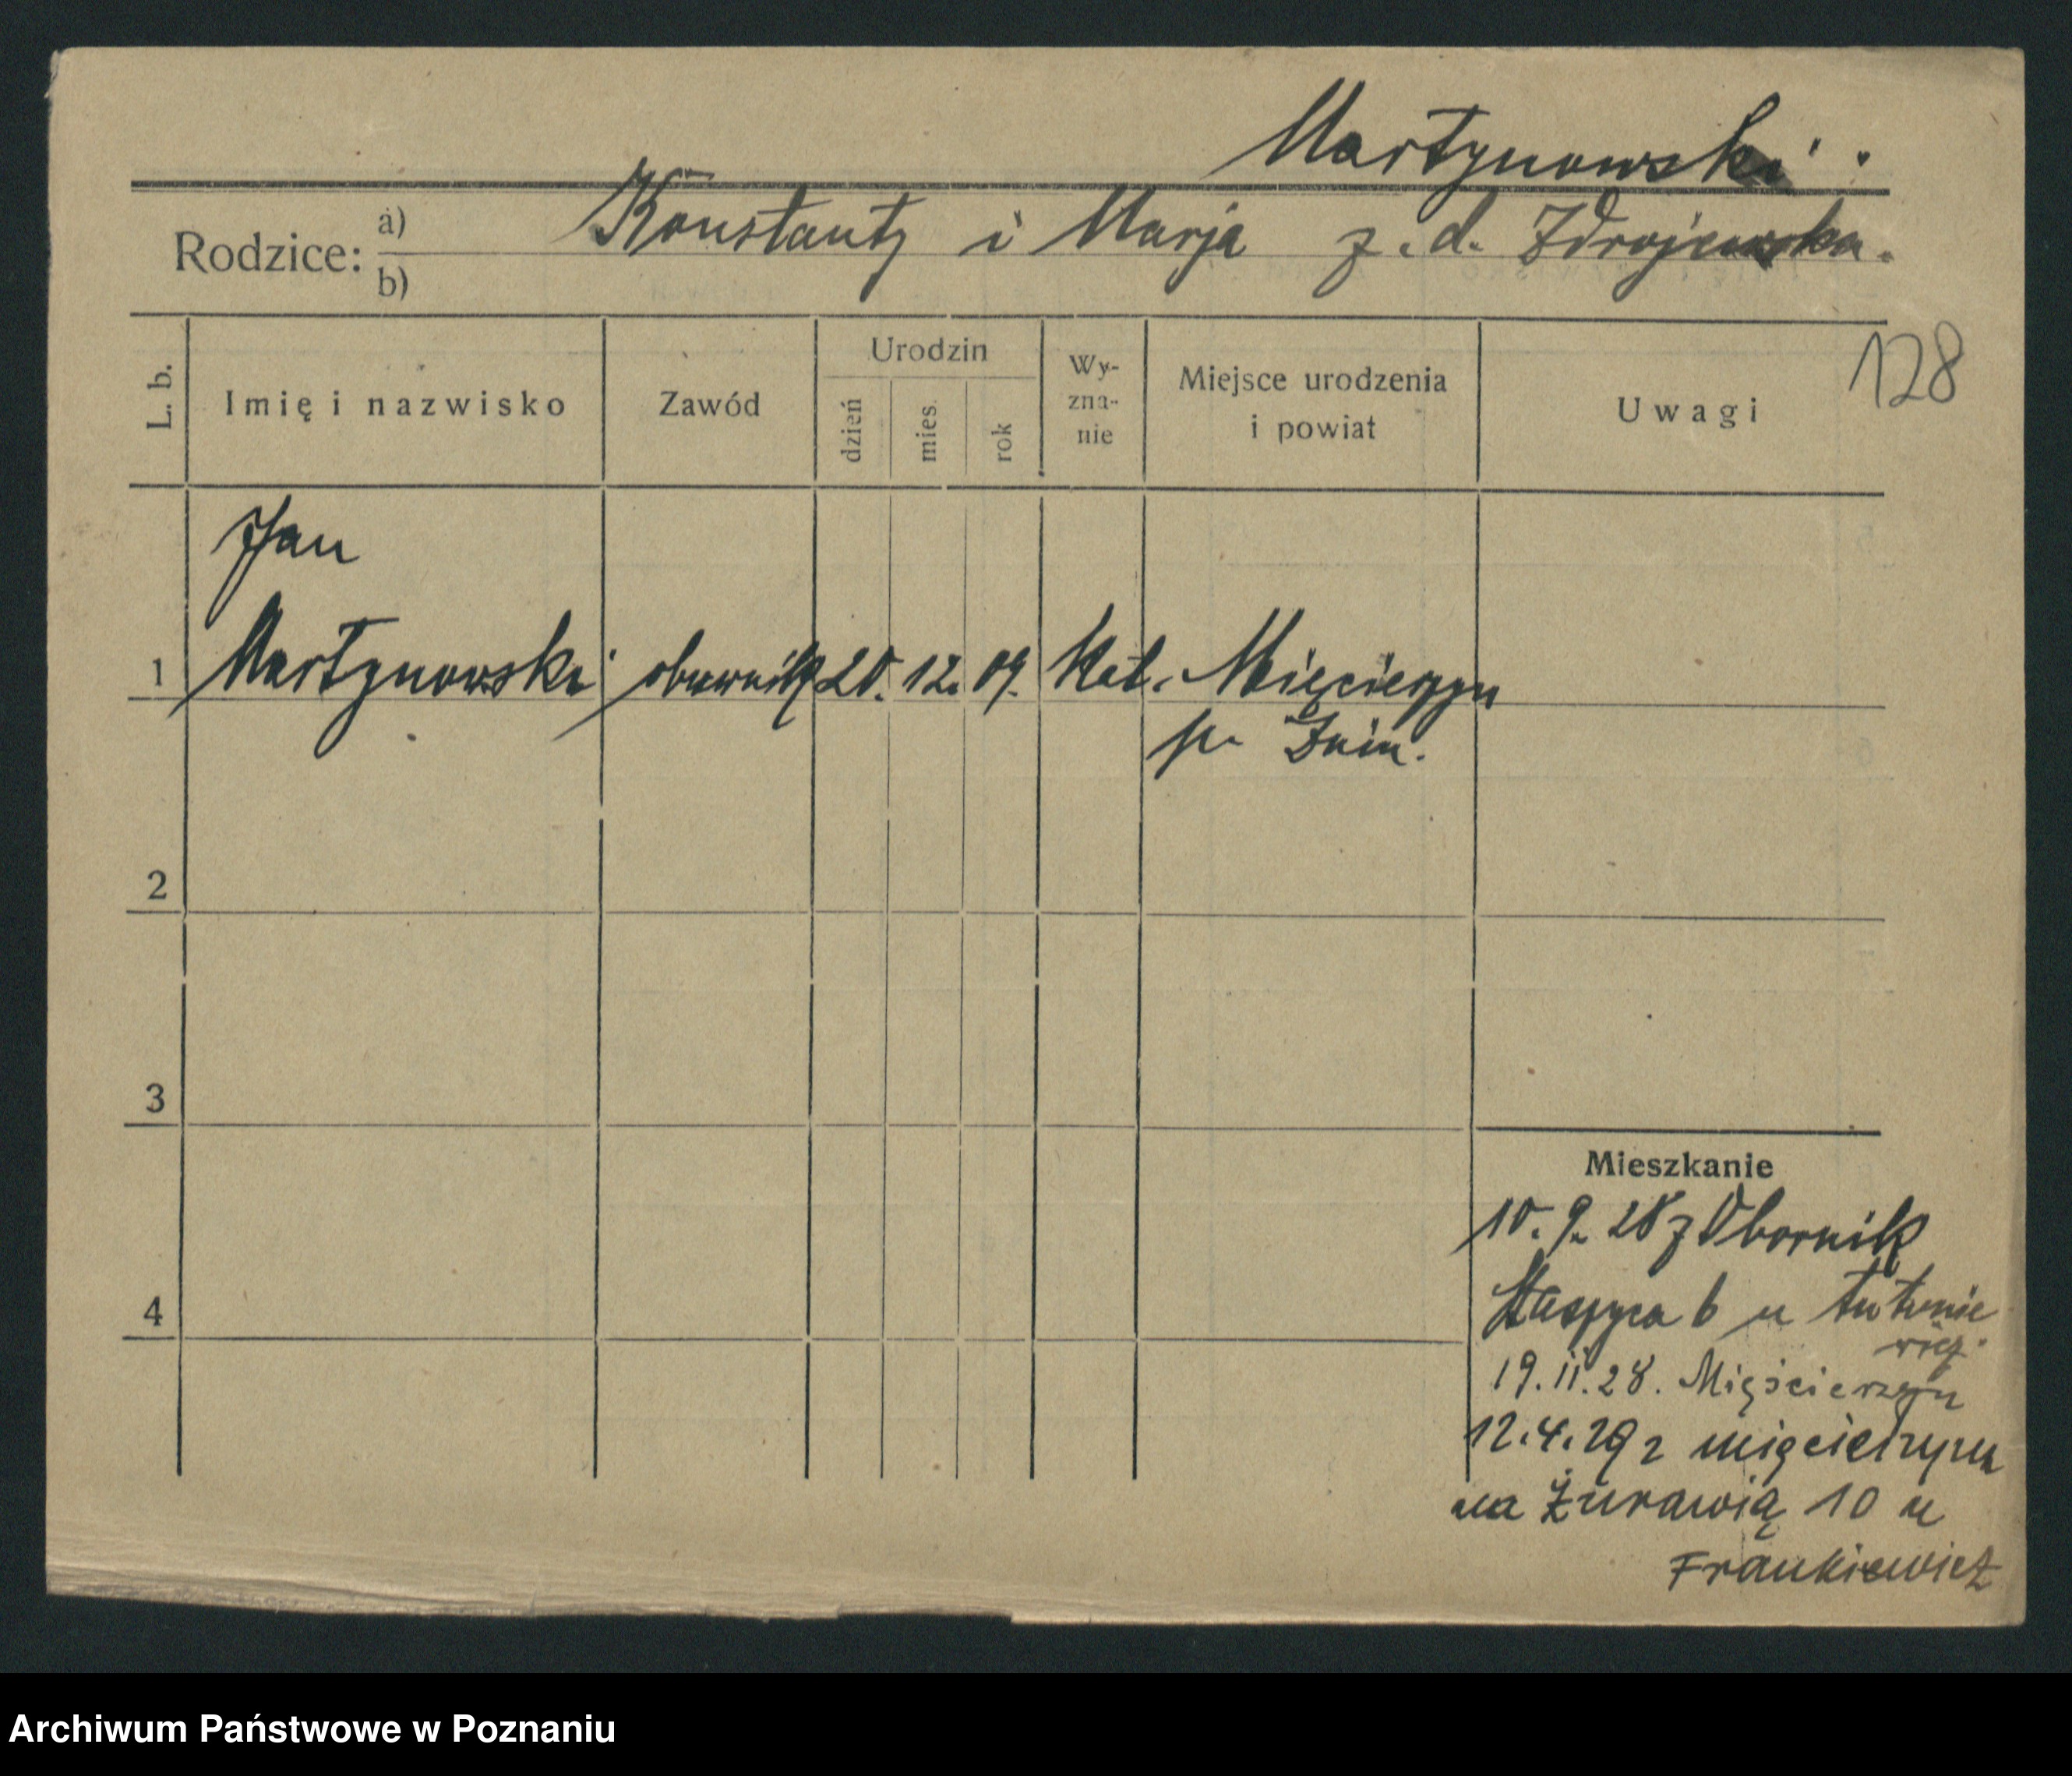 Martynowski.
Rodzice: a) Konstanty i Marja z. d. Zdrojewska.
b)
128
L. b.
Imię i nazwisko
Zawód
Urodzin
dzień
mies.
rok
Wy-
zna-
nie
Miejsce urodzenia
i powiat
Uwagi
Jan
1 Martynowski obuwnik 20. 12. 09. Kat. Mięcierzyn
p. Żnin.
2
3
4
Mieszkanie
10. 9. 28 z Obornik
Staszyca 6 u Antonie
wicz.
19.11.28. Mięścierzyn
12.4.29 z mięcierzyna
na Żurawią 10 u
Frankiewicz
Archiwum Państwowe w Poznaniu